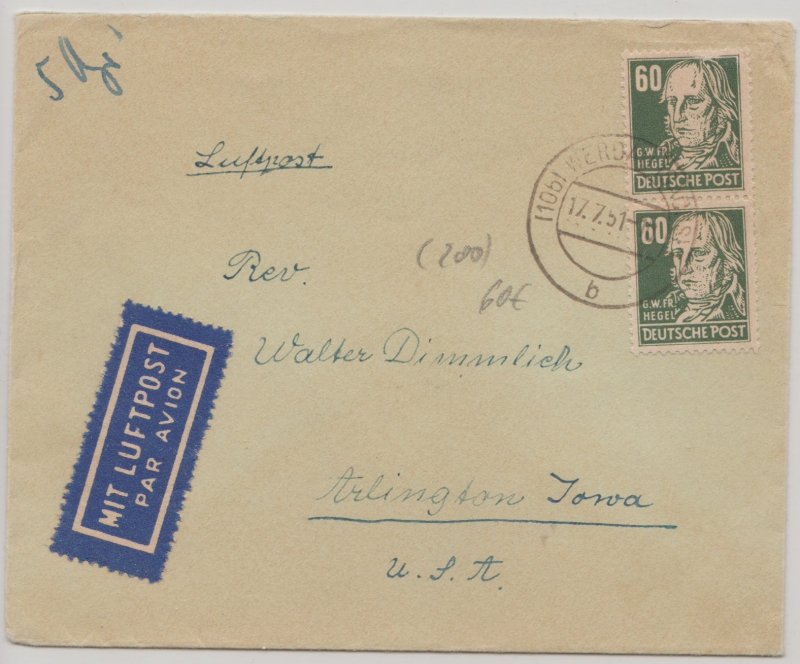 60
G.W.FR.
HEGEL
DEUTSCHE POST
Luftpost
(10b) WERDA
17. 7. 51
b
60
G.W.FR.
HEGEL
DEUTSCHE POST
(200)
60€
Rev.
Walter Dimmlich
MIT LUFTPOST
PAR AVION
Arlington Iowa
U. S. A.